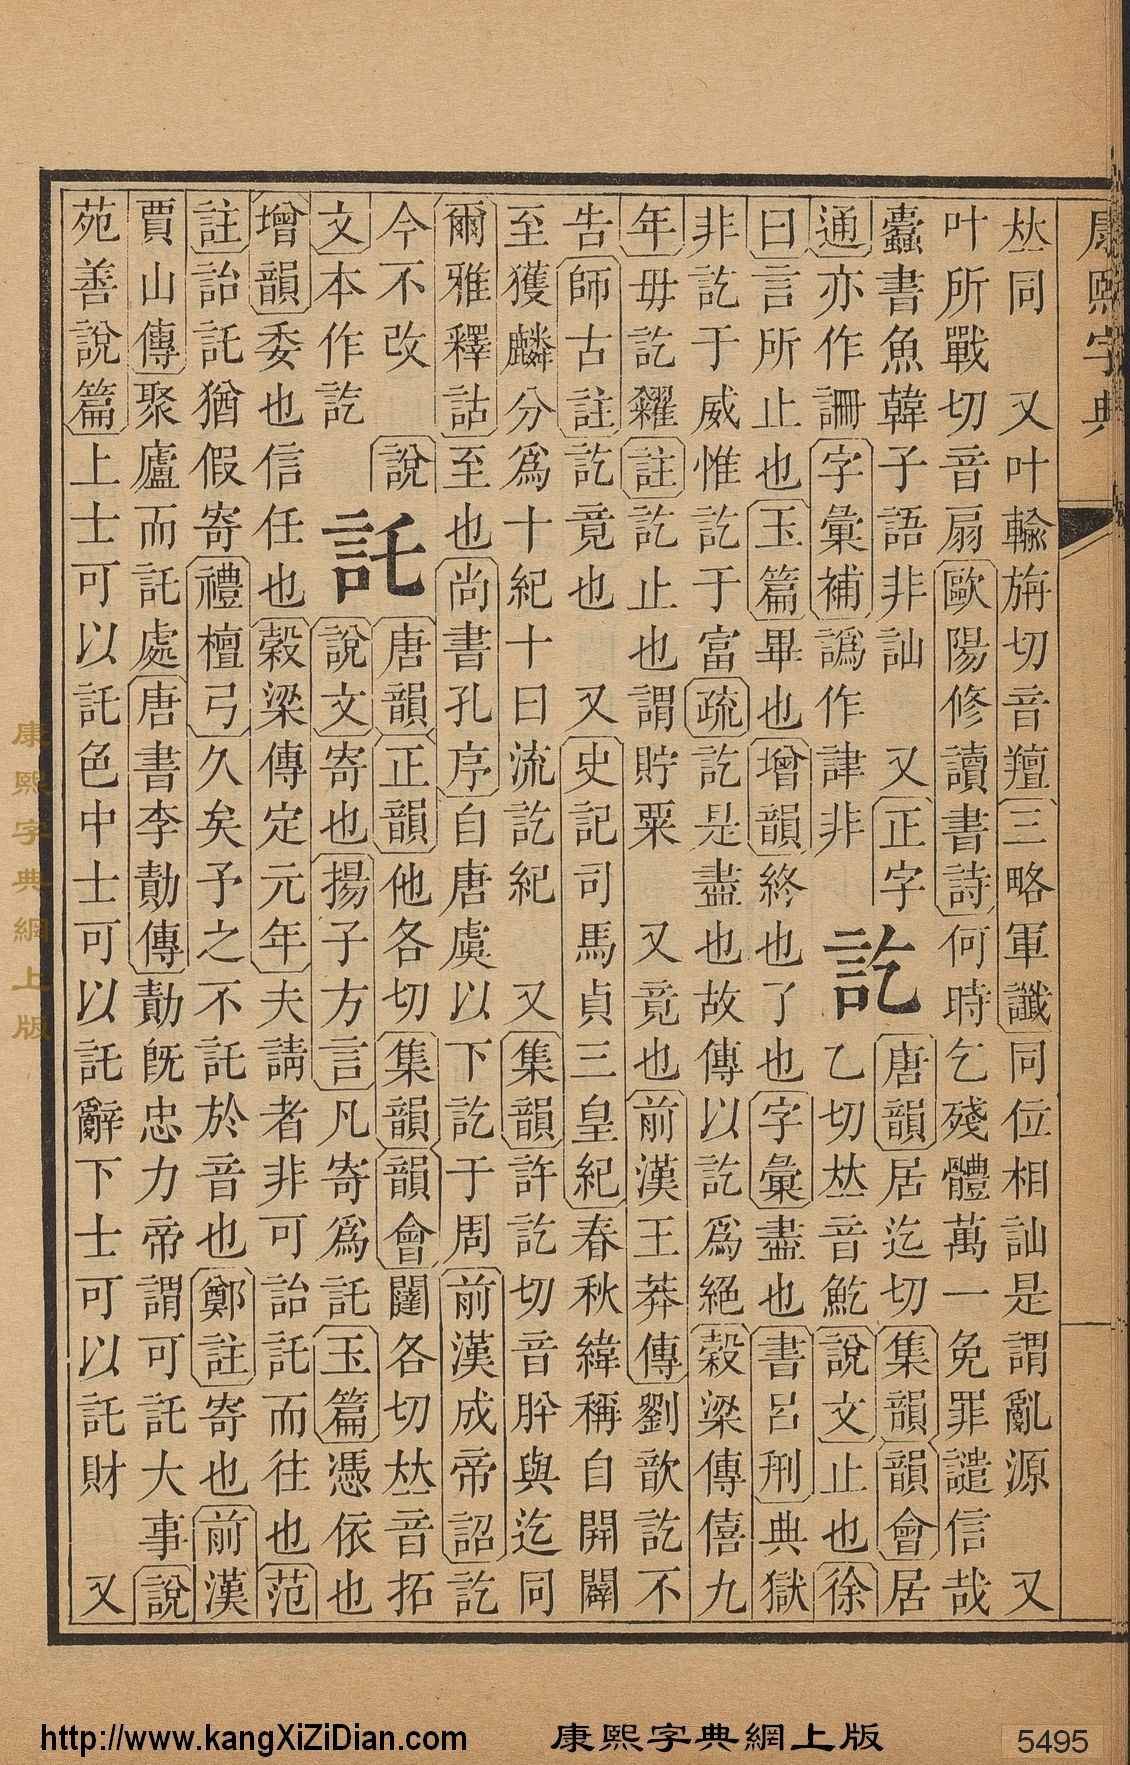 康熙字典
𠀤同 又叶輸旃切音羶三略軍讖同位相訕是謂亂源 又
叶所戰切音扇歐陽修讀書詩何時乞殘體萬一免罪譴信哉
蠹書魚韓子語非訕 又正字
通亦作䛹字彙補譌作䛛非
訖
唐韻居迄切集韻韻會居
乙切𠀤音魀說文止也徐
曰言所止也玉篇畢也增韻終也了也字彙盡也書呂刑典獄
非訖于威惟訖于富疏訖是盡也故傳以訖爲絕穀梁傳僖九
年毋訖糴註訖止也謂貯粟 又竟也前漢王莽傳劉歆訖不
告師古註訖竟也 又史記司馬貞三皇紀春秋緯稱自開闢
至獲麟分爲十紀十曰流訖紀 又集韻許訖切音肸與迄同
爾雅釋詁至也尚書孔序自唐虞以下訖于周前漢成帝詔訖
今不改 說
文本作訖
託
唐韻正韻他各切集韻韻會闥各切𠀤音拓
說文寄也揚子方言凡寄爲託玉篇憑依也
增韻委也信任也穀梁傳定元年夫請者非可詒託而往也范
註詒託猶假寄禮檀弓久矣予之不託於音也鄭註寄也前漢
賈山傳聚廬而託處唐書李勣傳勣旣忠力帝謂可託大事說
苑善說篇上士可以託色中士可以託辭下士可以託財 又
康熙字典網上版
http://www.kangXiZiDian.com 康熙字典網上版 5495